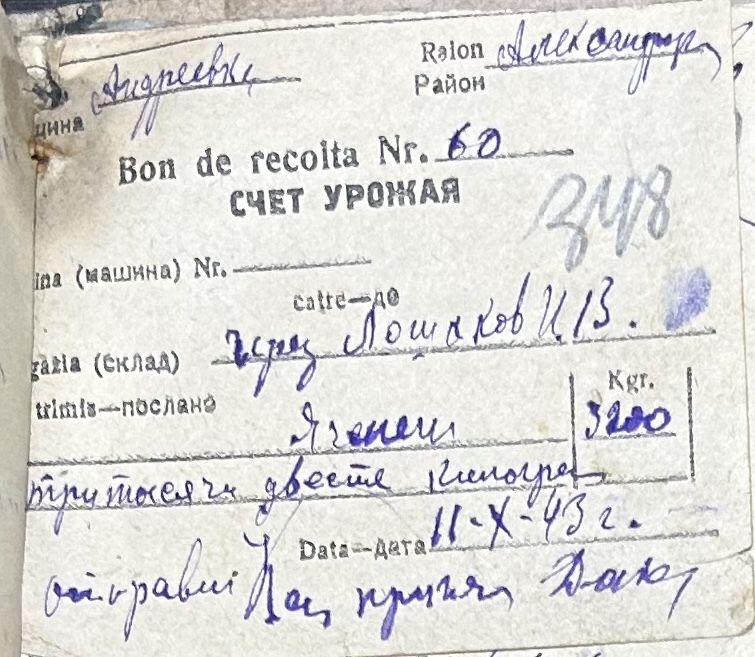 Андреевка Raion Александр
щина Район
Bon de recolta Nr. 60
СЧЕТ УРОЖАЯ
348
ina (машина) Nr.
catre—до
gazia (склад) через Лошаков И.В.
trimis—послано Kgr.
Ячмени 3200
три тысячи двести килогра
Data—дата 11-X-43 г.
отправил принял